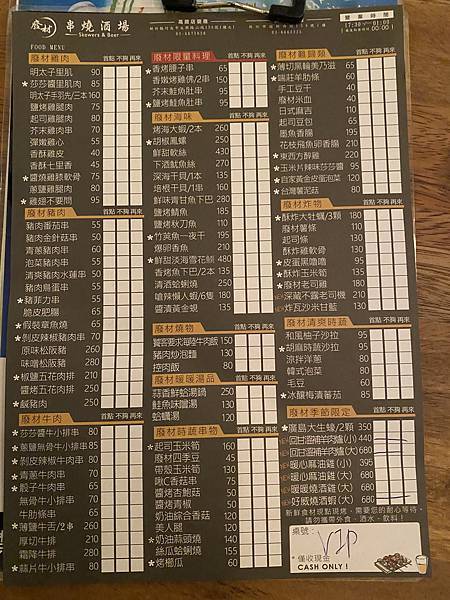 廢材 串燒酒場
Skewers & Beer
營業時間
17:30 ~ 01:00
FOOD MENU
廢材雞肉 首點 不夠 再來
明太子里肌 90
★莎莎醬里肌肉 85
明太子手羽先/三本 160
鹽烤雞腿肉 80
起司雞腿肉 80
芥末雞肉串 70
彈嫩雞心 55
香酥雞皮 40
香酥七里香 45
★醬燒雞膝軟骨 75
蔥鹽雞腿肉 80
★雞翅不要問 95
廢材豬肉 首點 不夠 再來
豬肉番茄串 55
豬肉金針菇串 50
青蔥豬肉串 60
泡菜豬肉串 55
清爽豬肉水蓮串 50
豬肉鳥蛋串 50
★豬菲力串 60
脆皮肥腸 65
★假裝章魚燒 65
★剝皮辣椒豬肉串 70
原味松阪豬 260
味噌松阪豬 260
★椒鹽五花肉排 210
醬烤五花肉排 250
★鹹豬肉 250
廢材牛肉 首點 不夠 再來
★莎莎醬牛小排串 85
★蔥鹽無骨牛小排 85
★剝皮辣椒牛肉串 80
★青蔥牛肉串 70
★骰子牛肉串 65
無骨牛小排串 80
牛肋條串 65
★薄鹽牛舌/2串 260
厚切牛排 110
霜降牛排 80
★蒜片牛小排串 80
廢材限量料理 首點 不夠 再來
★香烤腰子串 65
★香嫩烤雞佛/2串 150
★芥末鮭魚肚串 95
★鹽烤鮭魚肚串 95
廢材海味 首點 不夠 再來
烤海大蝦/2本 260
★胡椒鳳螺 250
鮮甜軟絲 430
下酒魷魚絲 270
深海干貝/1本 135
培根干貝/1串 160
鮮味青甘魚下巴 280
鹽烤鯖魚 185
鹽烤秋刀魚 110
★竹莢魚一夜干 195
爆卵香魚 210
★鮮甜淡海雪花鯛 480
香烤魚下巴/2本 135
清酒蛤蜊燒 210
嗆辣懶人蝦/6隻 180
醬漬黃金蜆 135
廢材燒物 首點 不夠 再來
饕客要求海陸牛肉飯 150
豬肉炒泡麵 130
控肉飯 80
廢材暖暖湯品 首點 不夠 再來
蒜香鮮蛤湯鍋 250
鮭魚味噌湯 130
蛤蠣湯 120
廢材時蔬串物 首點 不夠 再來
★起司玉米筍 160
廢材四季豆 45
帶殼玉米筍 130
啾C香菇串 75
醬烤杏鮑菇 50
醬烤青椒 50
奶油綜合香菇 120
美人腿 100
★奶油蒜頭燒 140
絲瓜蛤蜊燒 150
★烤櫛瓜 60
廢材雞歸類 首點 不夠 再來
★薄切黑輪美乃滋 65
★端莊羊肋條 60
手工豆干 40
廢材米血 40
日式麻吉 110
起司豆包 65
墨魚香腸 195
花枝飛魚卵香腸 210
★東西方醉雞 220
★玉米片辣味莎莎醬 95
★自家黃金皮蛋泡菜 120
★台灣薯泥菇 80
廢材炸物 首點 不夠 再來
★酥炸大牡蠣/3顆 180
廢材薯條 110
起司條 130
酥炸雞軟骨 130
★皮蛋黑嚕嚕 95
★酥炸玉米筍 135
★廢材老司雞 180
NEW深藏不露老司機 210
NEW炸瓦沙米甘藍 130
廢材清爽時蔬 首點 不夠 再來
★和風柚子沙拉 95
★胡麻時蔬沙拉 95
涼拌洋蔥 80
韓式泡菜 80
毛豆 60
★冰釀梅漬番茄 85
廢材季節限定 首點 不夠 再來
★廣島大生蠔/2顆 350
NEW回甘溫補羊肉爐(小) 440
NEW回甘溫補羊肉爐(大) 680
NEW暖心麻油雞(小) 395
NEW暖心麻油雞(大) 680
NEW暖暖燒酒雞(大) 680
NEW好威燒酒蝦(大) 680
新鮮食材現點現烤，需要您的耐心等待，
請勿攜帶外食、酒水、飲料！
桌號: VIP
*僅收現金
CASH ONLY !